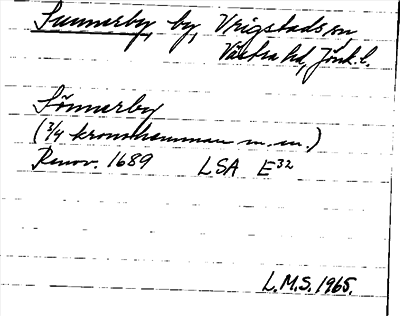 Sunnerby, by, Vrigstads sn
Västra hd, Jönk. l.
Sönnerby
(3/4 kronohemman m.m.)
Renov. 1689 LSA E32
L.M.S. 1965.